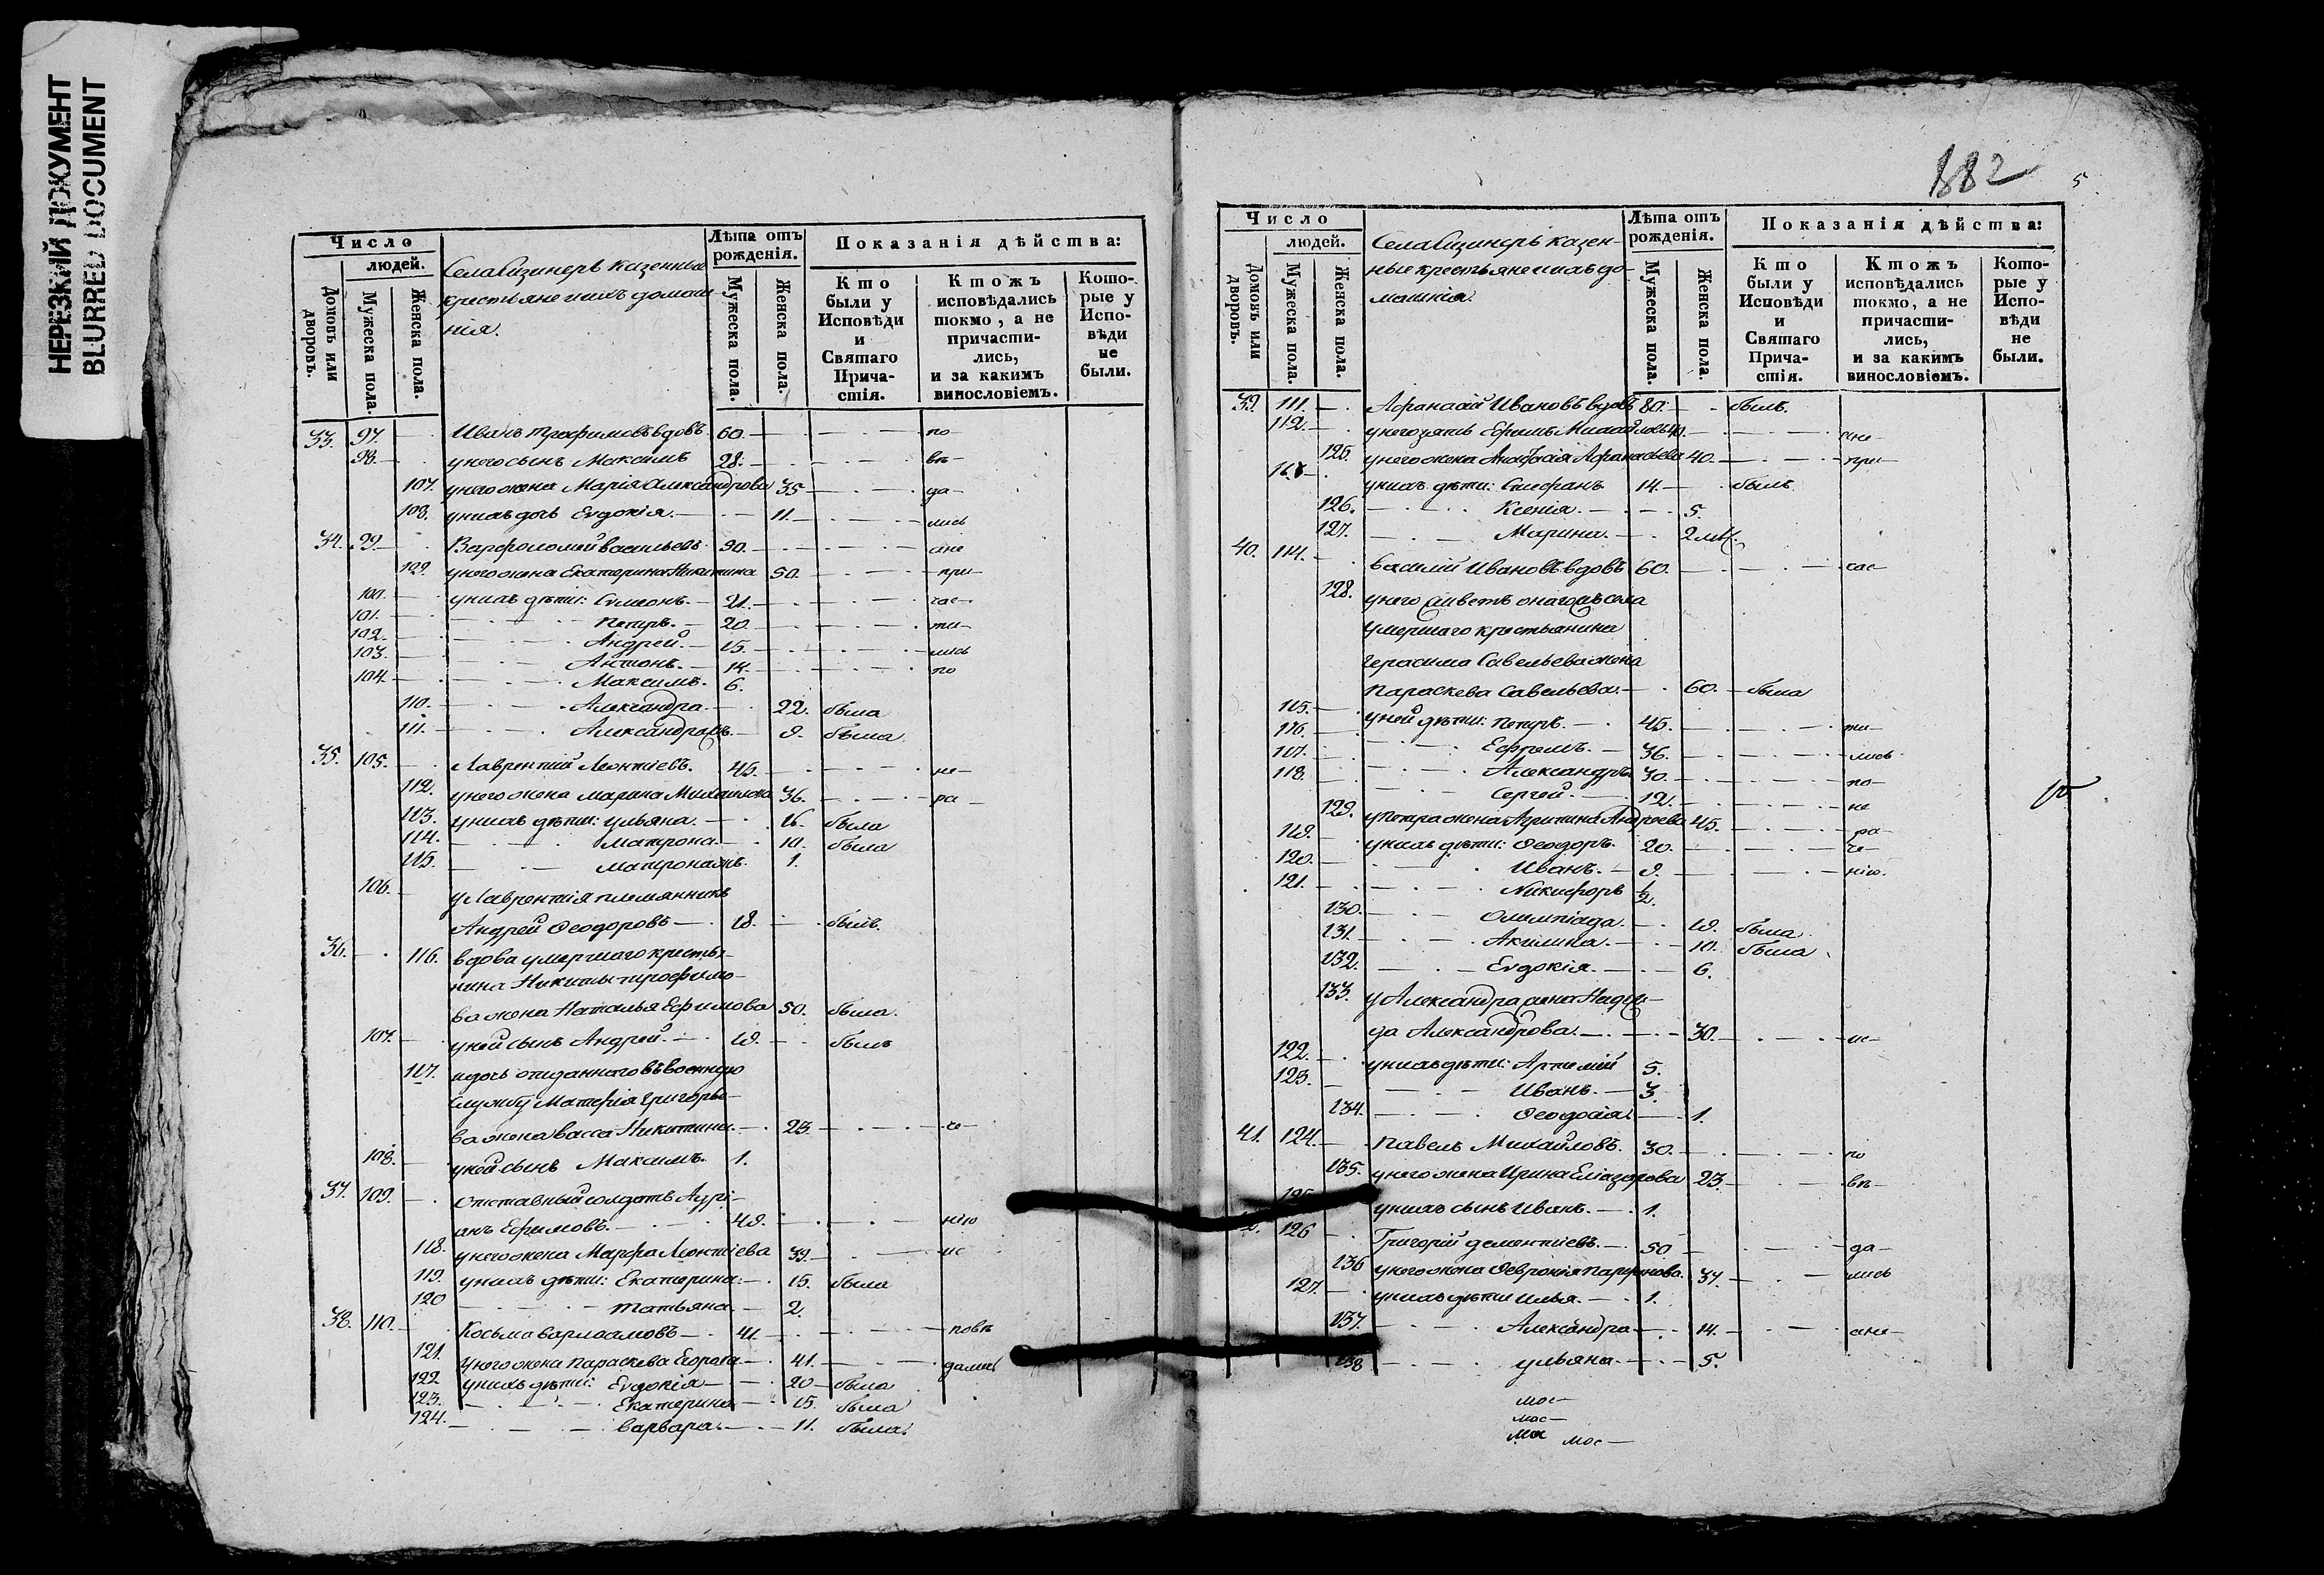 НЕРЕЗКИЙ ДОКУМЕНТ
BLURRED DOCUMENT
Число
людей.
Домовъ или дворовъ.
Мужеска пола.
Женска пола.
Села Сизинеръ казенные
крестьяне и ихъ домаш
нія.
Лѣта отъ рожденія.
Мужеска пола.
Женска пола.
Показанія дѣйства:
Кто были у Исповѣди и Святаго Прича- стія.
Ктожъ исповѣдались токмо, а не причасти- лись, и за какимъ винословіемъ.
Кото- рые у Испо- вѣди не были.
33. 97. Иванъ Трофимовъ вдовъ 60. по
98. у него сынъ Максимъ 28. вѣ
107. у него жена Марія Александрова 35 да
108. у нихъ дочь Евдокія. 11. лись
34. 99. Варфоломей Васильевъ 50. ане
109. у него жена Екатерина Никитина 50. при
100. у нихъ дѣти: Симеонъ. 21. час
101. Петръ. 20. ти
102. Андрей. 15. лись
103. Антонъ. 14. по
104. Максимъ. 6.
110. Александра. 22. была
111. Александра жъ. 9. была
35. 105. Лаврентій Леонтіевъ. 45. не
112. у него жена Марина Михаилова 36. ра
113. у нихъ дѣти: Ульяна. 16. была
114. Матрона. 10. была
115. Матрона жъ. 1.
106. у Лаврентія племянникъ
Андрей Ѳеодоровъ 18. былъ.
36. 116. вдова умершаго крестья
нина Никиты Трофимо
ва жена Наталья Ефимова 50. была.
107. у ней сынъ Андрей. 19. былъ
117. и дочь отданнаго въ военную
службу Матфія Григорье
ва жена Васса Никитина. 23. че
108. у ней сынъ Максимъ. 1.
37. 109. отставный солдатъ Адрі
анъ Ефимовъ. 49. нію
118. у него жена Марфа Леонтіева 39. ис
119. у нихъ дѣти: Екатерина. 15. была
120 Татьяна. 2.
38. 110. Косьма Варлаамовъ 41. повѣ
121. у него жена Параскева Егорова 41. дались
122 у нихъ дѣти: Евдокія 20 была
123. Екатерина 15. была
124. Варвара. 11. была.
882
5
Число
людей.
Домовъ или дворовъ.
Мужеска пола.
Женска пола.
Села Сизинеръ казен-
ные крестьяне и ихъ до-
машнія.
Лѣта отъ рожденія.
Мужеска пола.
Женска пола.
Показанія дѣйства:
Кто были у Исповѣди и Святаго Прича- стія.
Ктожъ исповѣдались токмо, а не причасти- лись, и за какимъ винословіемъ.
Кото- рые у Испо- вѣди не были.
39. 111. Афанасій Ивановъ вдовъ 80. былъ.
112. у него зять Ефимъ Михайловъ 40. ане
125. у него жена Анастасія Афанасьева 40. при
113 у нихъ дѣти: Стефанъ 14. былъ
126. Ксенія. 5.
127. Марина. 2
40. 114. Василій Ивановъ вдовъ 60. час
128. у него живетъ онаго жъ села
умершаго крестьянина
Герасима Савельева жена
Параскева Савельева. 60. была
115. у ней дѣти: Петръ. 45. ти
116. Ефремъ. 36. лись
117. Александръ 30. по
118. Сергей. 12. не
129. у Петра жена Агрипина Андреева 45. ра
119. у нихъ дѣти: Ѳеодоръ. 20. че
120. Иванъ. 9. нію.
121. Никифоръ 1/2.
130. Олимпіада. 19. была
131. Акилина. 10. была
132. Евдокія. 6.
133. у Александра жена Надеж
да Александрова. 30. ис
122. у нихъ дѣти: Артемій 5.
123. Иванъ. 3.
134. Ѳеодосія. 1.
41. 124. Павелъ Михайловъ. 30. по
135. у него жена Ирина Еліазарова 23. вѣ
125 у нихъ сынъ Иванъ. 1.
126 Григорій Дементіевъ. 50 да
136 у него жена Февронія Парфенова. 37. лись
127. у нихъ дѣти Илья. 1.
137. Александра 14. ане
138 Ульяна. 5.
мос
мос
мос
мос